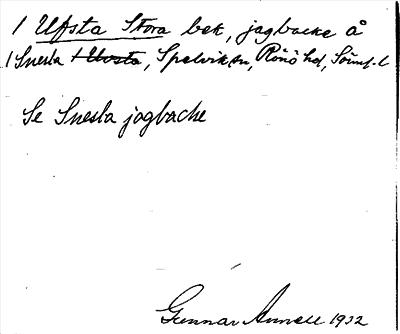 / Ufsta Stora bek, jagbacke å
/ Snesla /Uvsta, Spelviksn, Rönö hd, Söml.l
Se Snesla jagbacke
Gunnar Annell 1932